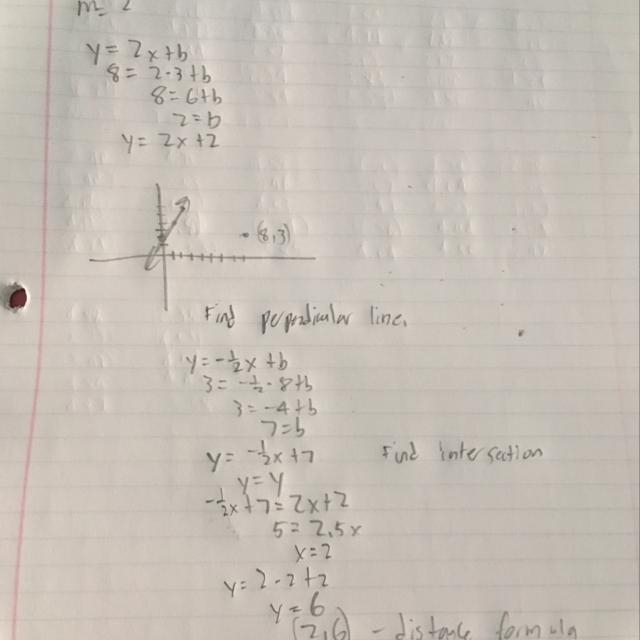 m= 2
y = 2x+b
8 = 2·3+b
8=6+b
2=b
y= 2x+2
(8,3)
Find perpndicular line.
y=-½x+b
3=-½·8+b
3=-4+b
7=b
y= -½x+7 Find intersection
y=y
-½x+7=2x+2
5=2.5x
x=2
y=2·2+2
y=6
(2,6) - distance formula